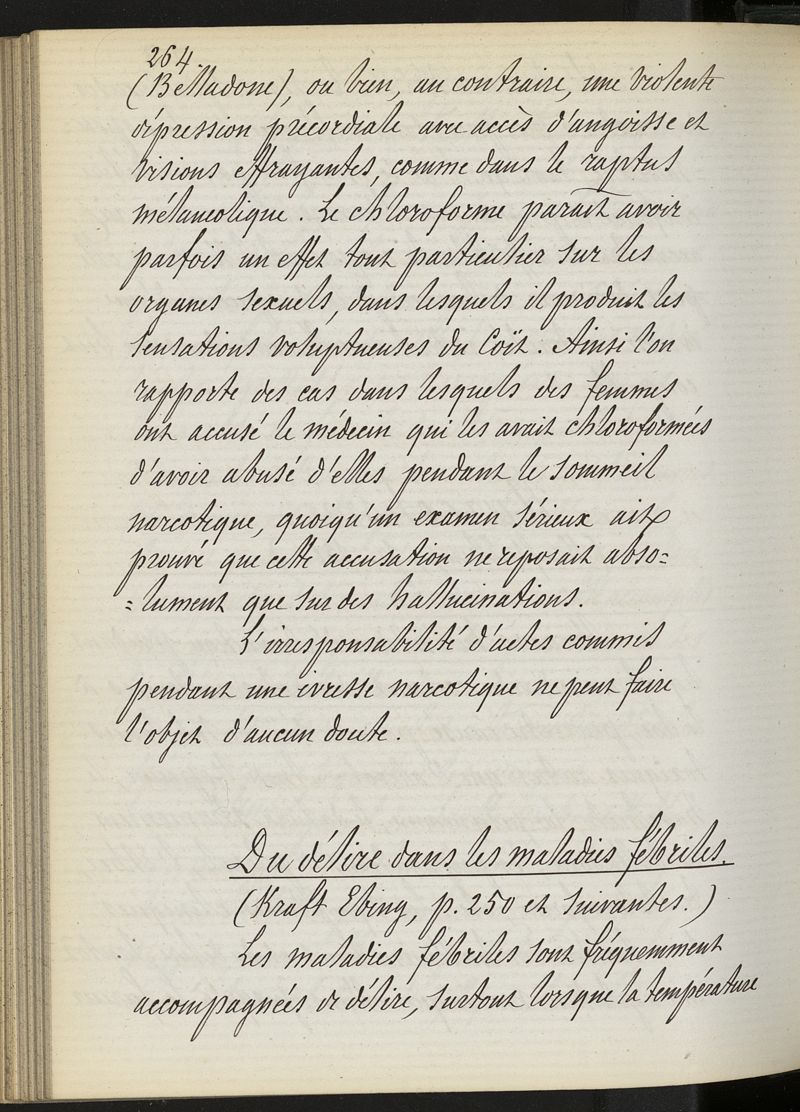 264
(Belladone), ou bien, au contraire, une violente
dépression précordiale avec accès d'angoisse et
visions effrayantes, comme dans le raptus
mélancolique. Le chloroforme paraît avoir
parfois un effet tout particulier sur les
organes sexuels, dans lesquels il produit les
sensations voluptueuses du Coït. Ainsi l'on
rapporte des cas dans lesquels des femmes
ont accusé le médecin qui les avait chloroformées
d'avoir abusé d'elles pendant le sommeil
narcotique, quoiqu'un examen sérieux ait
prouvé que cette accusation ne reposait abso=
=lument que sur des hallucinations.
L'irresponsabilité d'actes commis
pendant une ivresse narcotique ne peut faire
l'objet d'aucun doute.
Du délire dans les maladies fébriles.
(Kraft Ebing, p. 250 et suivantes.)
Les maladies fébriles sont fréquemment
accompagnées de délire, surtout lorsque la température